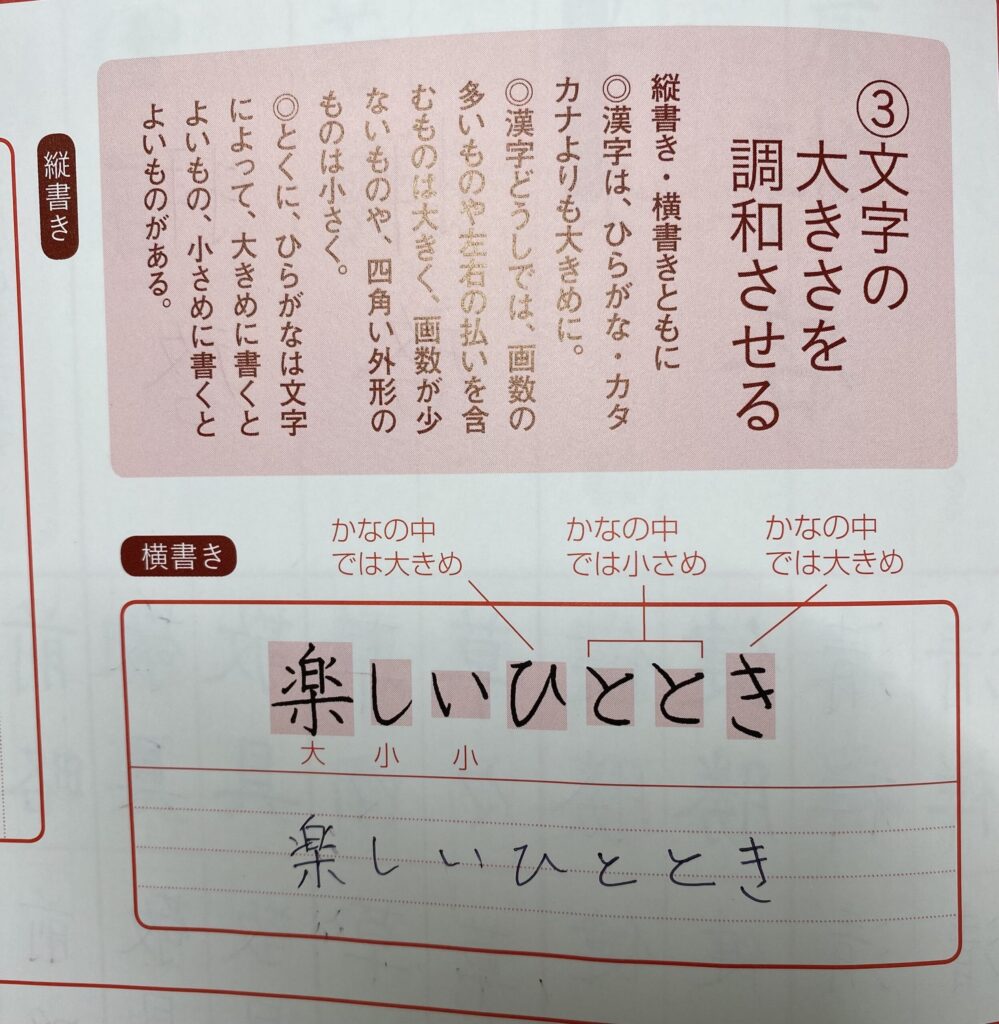 ③文字の
大きさを
調和させる
縦書き・横書きともに
◎漢字は、ひらがな・カタ
カナよりも大きめに。
◎漢字どうしでは、画数の
多いものや左右の払いを含
むものは大きく、画数が少
ないものや、四角い外形の
ものは小さく。
◎とくに、ひらがなは文字
によって、大きめに書くと
よいもの、小さめに書くと
よいものがある。
縦書き
横書き
かなの中
では大きめ
かなの中
では小さめ
かなの中
では大きめ
楽しいひととき
大 小 小
楽しいひととき